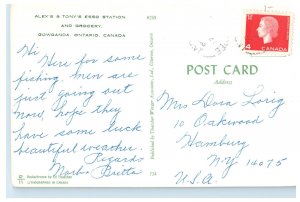 ALEX'S & TONY'S ESSO STATION
AND GROCERY,
GOWGANDA, ONTARIO, CANADA
Hi
Here for some
fishing men are
just going out
now, hope they
have some luck
beautiful weather.
Regards
POST CARD
Address
4
Mrs Dora Lorig
10 Oakwood
Hamburg
N.Y. 14075
U.S.A.